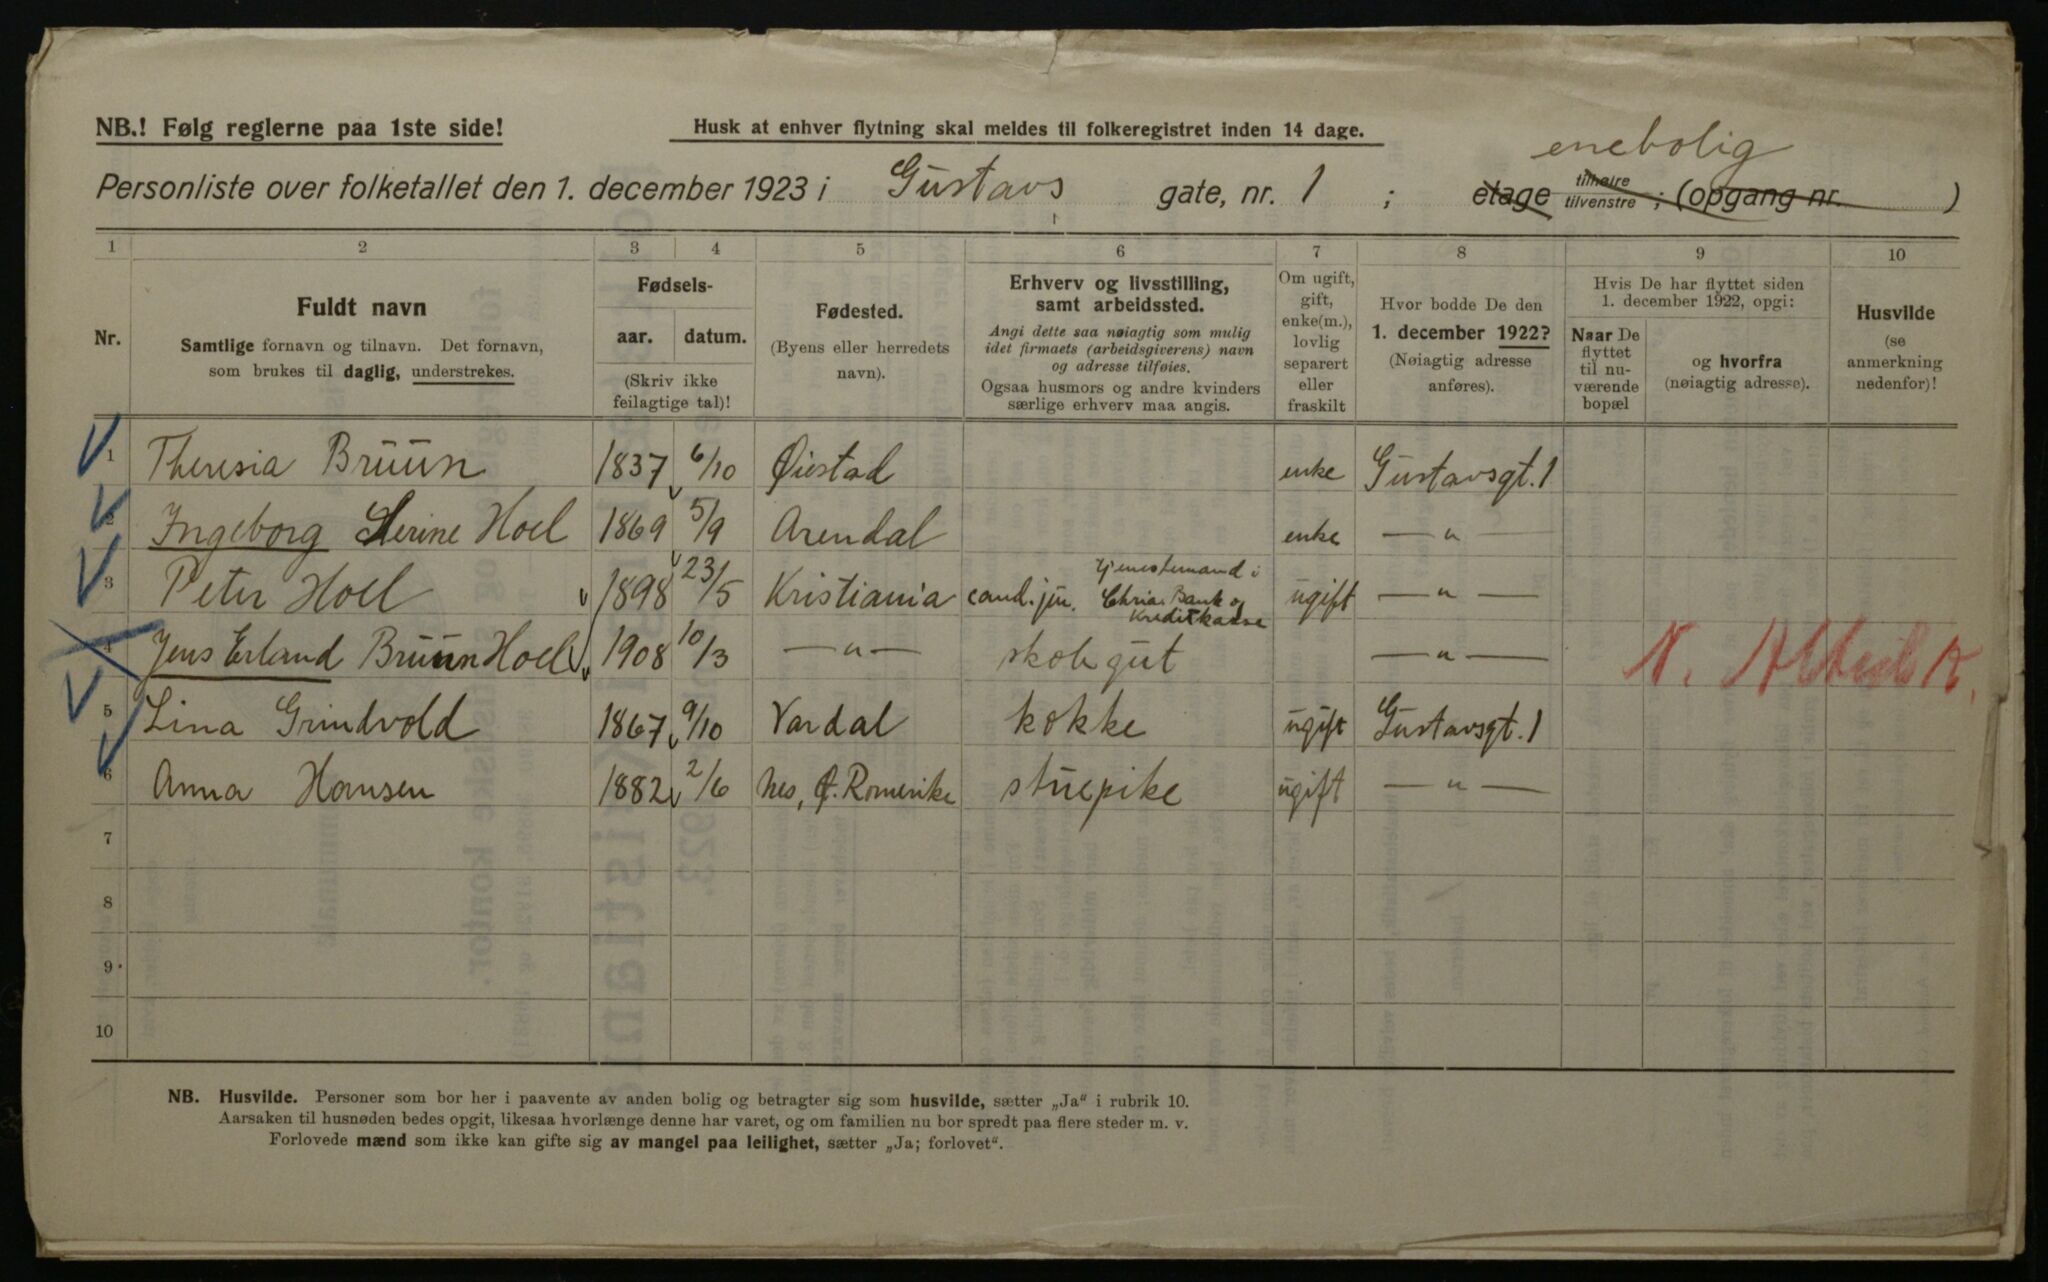 NB.! Følg reglerne paa 1ste side!
Husk at enhver flytning skal meldes til folkeregistret inden 14 dage.
enebolig
Personliste over folketallet den 1. december 1923 i Gustavs gate, nr. 1 ; etage tilhøire tilvenstre ; (opgang nr. )
1 2 3 4 5 6 7 8 9 10
Nr.
Fuldt navn
Samtlige fornavn og tilnavn. Det fornavn,
som brukes til daglig, understrekes.
Fødsels-
aar. datum.
(Skriv ikke
feilagtige tal)!
Fødested.
(Byens eller herredets
navn).
Erhverv og livsstilling,
samt arbeidssted.
Angi dette saa nøiagtig som mulig
idet firmaets (arbeidsgiverens) navn
og adresse tilføies.
Ogsaa husmors og andre kvinders
særlige erhverv maa angis.
Om ugift,
gift,
enke(m.),
lovlig
separert
eller
fraskilt
Hvor bodde De den
1. december 1922?
(Nøiagtig adresse
anføres).
Hvis De har flyttet siden
1. december 1922, opgi:
Naar De
flyttet
til nu-
værende
bopæl
og hvorfra
(nøiagtig adresse).
Husvilde
(se
anmerkning
nedenfor)!
1 Theresia Bruun 1837 6/10 Øiestad enke Gustavsgt. 1
2 Ingeborg Serine Hoel 1869 5/9 Arendal enke — " —
3 Peter Hoel 1898 23/5 Kristiania cand. jur. Tjenestemand i Chria. Bank og Kreditkasse ugift — " —
4 Jens Erland Bruun Hoel 1908 10/3 — " — skolegut — " — N.
5 Lina Grindvold 1867 9/10 Vardal kokke ugift Gustavsgt. 1
6 Anna Hansen 1882 2/6 Nes, Ø. Romerike stuepike ugift — " —
7
8
9
10
NB. Husvilde. Personer som bor her i paavente av anden bolig og betragter sig som husvilde, sætter „Ja“ i rubrik 10.
Aarsaken til husnøden bedes opgit, likesaa hvorlænge denne har varet, og om familien nu bor spredt paa flere steder m. v.
Forlovede mænd som ikke kan gifte sig av mangel paa leilighet, sætter „Ja; forlovet“.